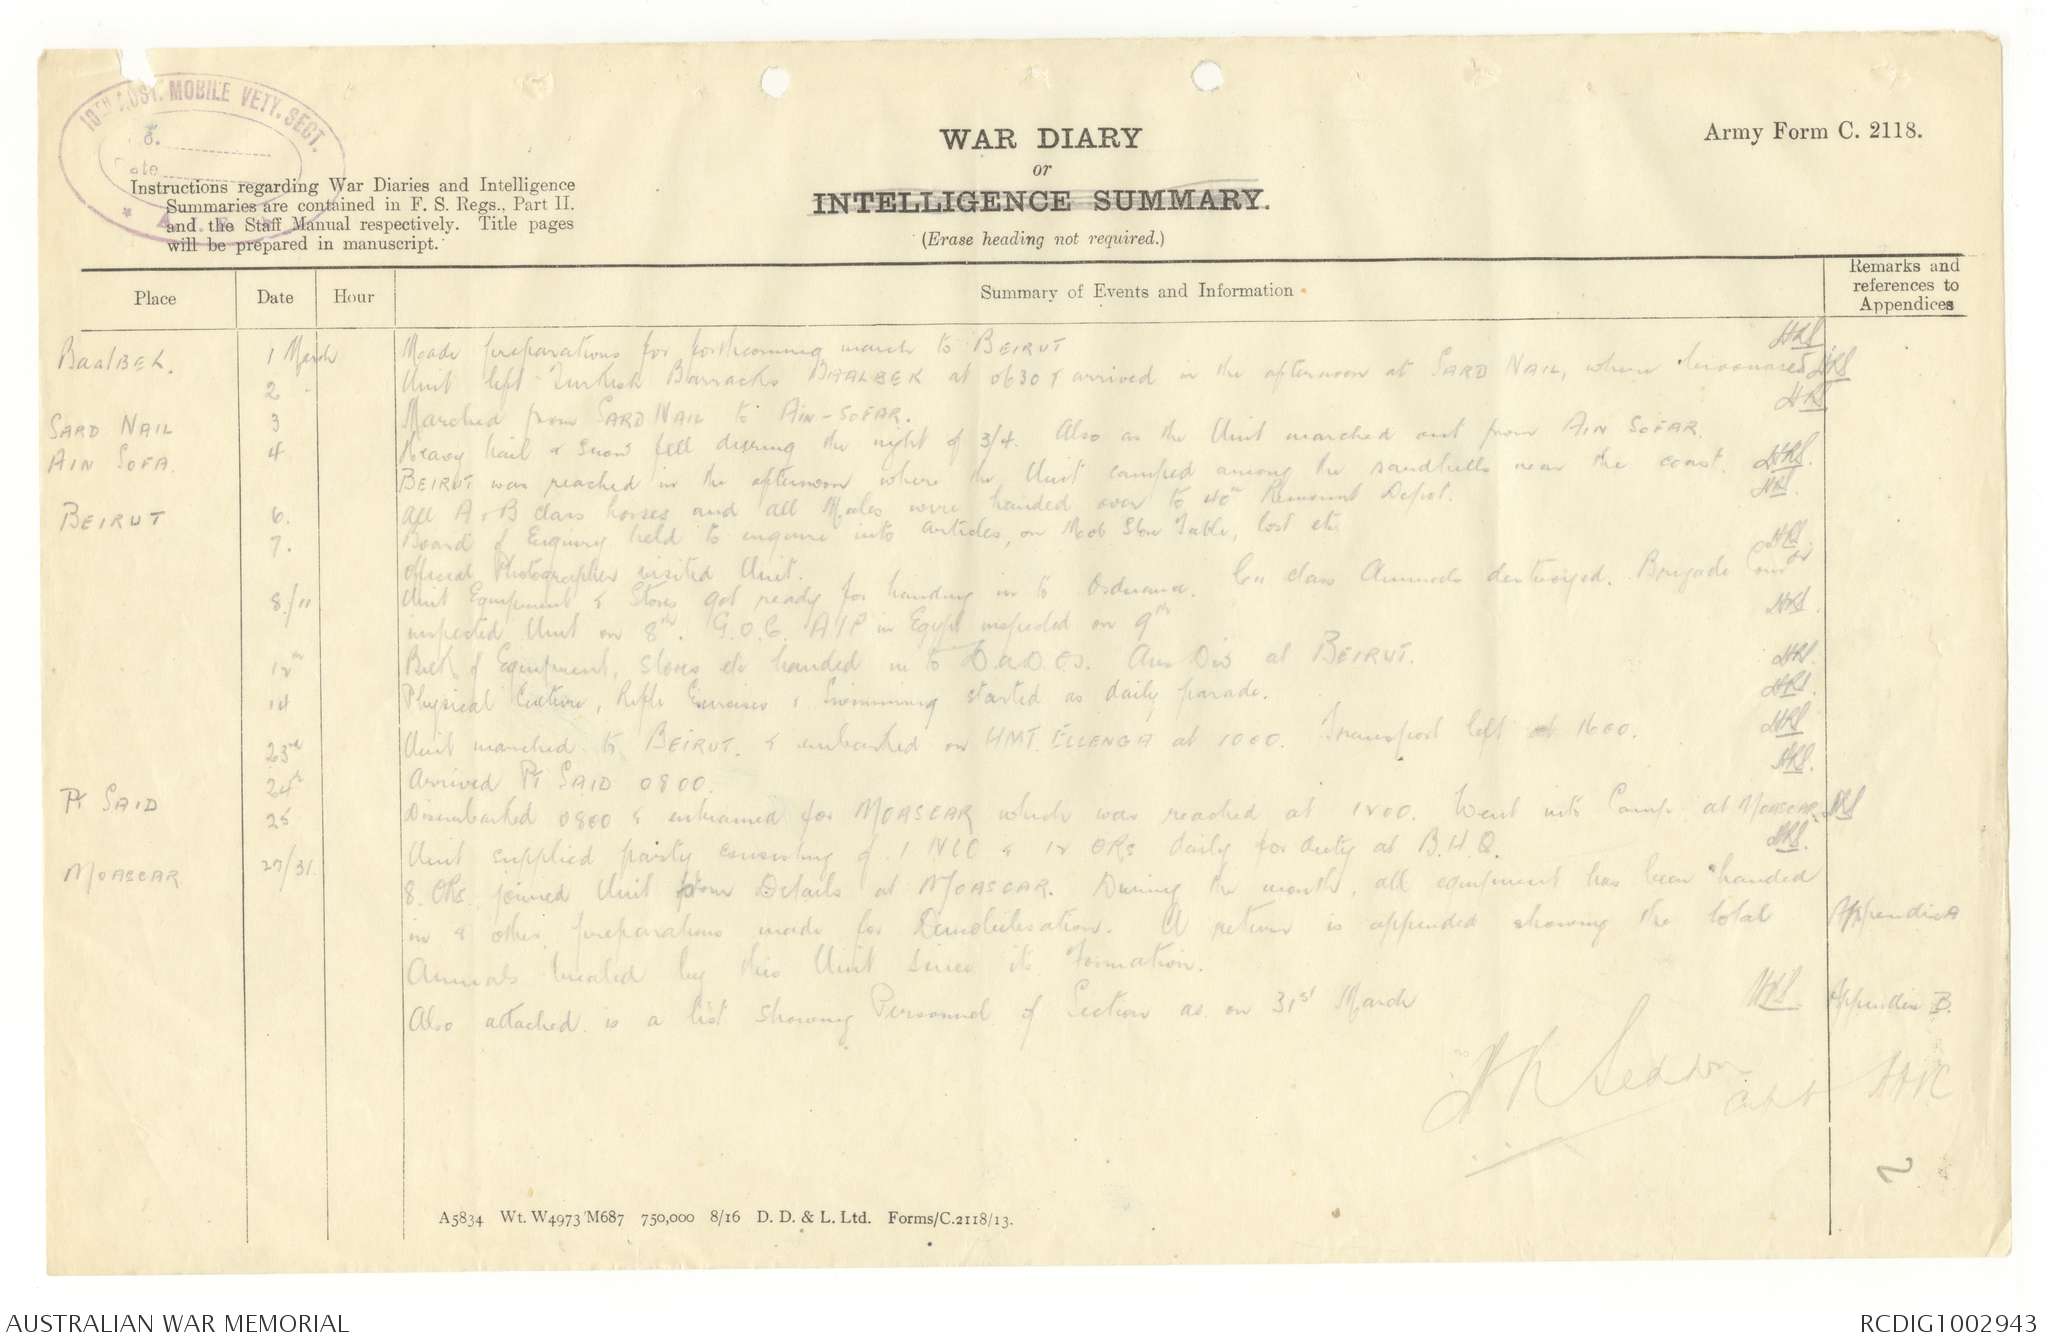 10TH AUST. MOBILE VETY. SECT.
Army Form C. 2118.
WAR DIARY
or
INTELLIGENCE SUMMARY.
(Erase heading not required.)
Instructions regarding War Diaries and Intelligence
Summaries are contained in F. S. Regs., Part II.
and the Staff Manual respectively. Title pages
will be prepared in manuscript.
Place Date Hour Summary of Events and Information Remarks and references to Appendices
BAALBEK. 1 March Made preparations for forthcoming march to BEIRUT HRS
2 Unit left Turkish Barracks BAALBEK at 0630 & arrived in the afternoon at SARD NAIL, where bivouaced HRS
SARD NAIL 3 Marched from SARD NAIL to AIN-SOFAR. HRS
AIN SOFA. 4 Heavy hail & snow fell during the night of 3/4. Also as the Unit marched out from AIN SOFAR.
BEIRUT was reached in the afternoon where the Unit camped among the sandhills near the coast. HRS.
BEIRUT 6. All A & B class horses and all Mules were handed over to 40th Remount Depot. HRS.
7. Board of Enquiry held to enquire into articles, on Mob Store Table, lost etc
Official Photographer visited Unit. HRS.
8/11 Unit Equipment & Stores got ready for handing in to Ordnance. "C" class Animals destroyed. Brigade Comdr
inspected Unit on 8th. G.O.C. AIF in Egypt inspected on 9th HRS.
12th Bulk of Equipment, stores etc handed in to D.A.D.O.S. Aus Div at BEIRUT. HRS.
14 Physical Culture, Rifle Exercises & Swimming started as daily parade. HRS.
23rd Unit marched to BEIRUT. & embarked on HMT. ELLENGA at 1000. Transport left at 1600. HRS
24th Arrived Pt SAID 0800. HRS.
Pt SAID 25 Disembarked 0800 & entrained for MOASCAR which was reached at 1200. Went into Camp at MOASCAR. HRS
MOASCAR 27/31 Unit supplied party consisting of 1 NCO & 12 ORs daily for duty at B.H.Q. HRS.
8. ORs. joined Unit from Details at MOASCAR. During the month, all equipment has been handed
in & other preparations made for Demobilisation. A return is appended showing the total Appendix A
Animals treated by this Unit since its formation.
Also attached is a list showing Personnel of Section as on 31st March HRS. Appendix B.
H R Seddon
Capt
2
A5834 Wt. W4973/M687 750,000 8/16 D. D. & L. Ltd. Forms/C.2118/13.
AUSTRALIAN WAR MEMORIAL
RCDIG1002943